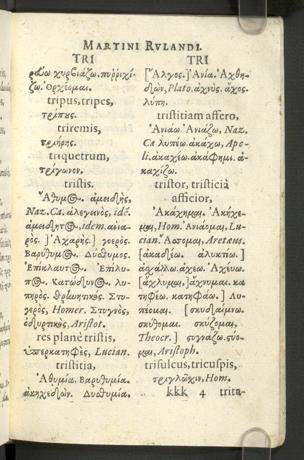 MARTINI RVLANDI.
TRI
κορυβαντιάζω. πυῤῥιχί-
ζω. Ὀρχέομαι.
tripus, tripes,
τρίπυς.
triremis,
τριήρης.
triquetrum,
τρίγωνον.
tristis.
Ἄθυμος. ἀμειδὴς,
Naz. Ca. ἀλεγεινὸς, id.
ἀμειδητος, idem. ἀνια-
ρὸς.] Ἀχαρής.] γοερός.
Βαρύθυμος. Δύσθυμος.
Ἐπίκλαυτος. Ἐπίλυ-
πος. Κατώδυνος. λυ-
πηρός. θρηνητικός. Στυ-
γερὸς, Homer. Στυγνὸς,
ὀδυρτικὸς, Aristot.
res planè tristis,
ὑπερκατηφὲς, Lucian.
tristitia,
Ἀθυμία. Βαρυθυμία.
ἀκηχεδών. Δυσθυμία.
TRI
[Ἄλγος.] Ἀνία. Ἀχθη-
δὼν, Plato. ἄχνυς. ἄχος.
λύπη.
tristitiam affero,
Ἀνιάω Ἀνιάζω, Naz.
Ca λυπέω. ἀκάχω, Apo-
li. ἀκαχίω. ἀκάφημι. ἀ-
καχίζω.
tristor, tristicia
afficior,
Ἀκάχημαι. Ἀκήχε-
μαι, Hom. Ἀνιάομαι, Lu-
cian. Aretaeus.
λυ-
πέομαι. [σκυδμαίνω.
σκύθομαι. σκύζομαι,
Theocr.] στυγνάζω.
Aristoph.
trisulcus, tricuspis,
τριγλώχιν, Hom.
kkk 4 trita-